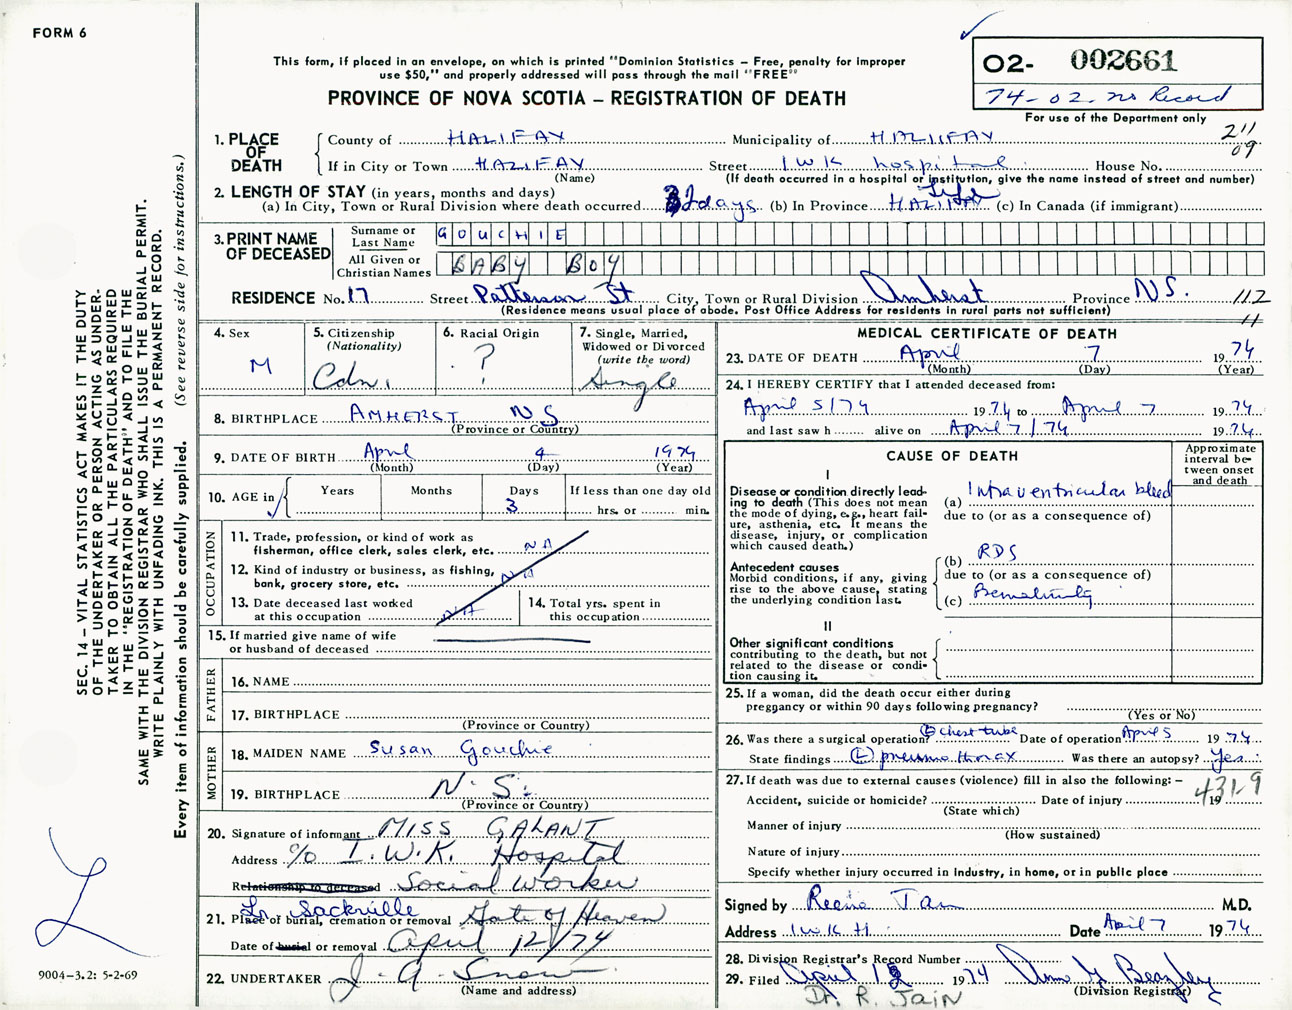 FORM 6
This form, if placed in an envelope, on which is printed "Dominion Statistics – Free, penalty for improper
use $50," and properly addressed will pass through the mail "FREE"
PROVINCE OF NOVA SCOTIA – REGISTRATION OF DEATH
O2- 002661
74-02- no Record
For use of the Department only
211
09
1. PLACE OF DEATH
County of HALIFAX Municipality of HALIFAX
If in City or Town HALIFAX Street IWK hospital House No.
(Name) (If death occurred in a hospital or institution, give the name instead of street and number)
2. LENGTH OF STAY (in years, months and days)
(a) In City, Town or Rural Division where death occurred 2 days (b) In Province Life (c) In Canada (if immigrant)
3. PRINT NAME OF DECEASED
Surname or Last Name GOUCHIE
All Given or Christian Names BABY BOY
RESIDENCE No. 17 Street Patterson St City, Town or Rural Division Amherst Province NS.
(Residence means usual place of abode. Post Office Address for residents in rural parts not sufficient)
112
11
4. Sex
M
5. Citizenship
(Nationality)
Cdn.
6. Racial Origin
?
7. Single, Married,
Widowed or Divorced
(write the word)
Single
8. BIRTHPLACE AMHERST NS
(Province or Country)
9. DATE OF BIRTH April 4 1974
(Month) (Day) (Year)
10. AGE in
Years Months Days If less than one day old
3 hrs. or min.
OCCUPATION
11. Trade, profession, or kind of work as
fisherman, office clerk, sales clerk, etc. NA
12. Kind of industry or business, as fishing,
bank, grocery store, etc. NA
13. Date deceased last worked
at this occupation N/A
14. Total yrs. spent in
this occupation
15. If married give name of wife
or husband of deceased
FATHER
16. NAME
17. BIRTHPLACE
(Province or Country)
MOTHER
18. MAIDEN NAME Susan Gouchie
19. BIRTHPLACE N.S.
(Province or Country)
20. Signature of informant MISS GALANT
Address c/o I.W.K. Hospital
Relationship to deceased Social Worker
Lr. Sackville
21. Place of burial, cremation or removal Gate of Heaven
Date of burial or removal April 12/74
22. UNDERTAKER J. A. Snow
(Name and address)
MEDICAL CERTIFICATE OF DEATH
23. DATE OF DEATH April 7 1974
(Month) (Day) (Year)
24. I HEREBY CERTIFY that I attended deceased from:
April 5/74 1974 to April 7 1974
and last saw h alive on April 7/74 1974
CAUSE OF DEATH
Approximate
interval be-
tween onset
and death
I
Disease or condition directly lead-
ing to death (This does not mean
the mode of dying, e.g., heart fail-
ure, asthenia, etc. It means the
disease, injury, or complication
which caused death.)
(a) Intraventricular bleed
due to (or as a consequence of)
(b) RDS
due to (or as a consequence of)
(c)
Antecedent causes
Morbid conditions, if any, giving
rise to the above cause, stating
the underlying condition last.
II
Other significant conditions
contributing to the death, but not
related to the disease or condi-
tion causing it.
25. If a woman, did the death occur either during
pregnancy or within 90 days following pregnancy?
(Yes or No)
26. Was there a surgical operation? (L) chest tube Date of operation April 5 1974
State findings (L) pneumothorax Was there an autopsy? Yes
27. If death was due to external causes (violence) fill in also the following: –
431.9
Accident, suicide or homicide? Date of injury 19
(State which)
Manner of injury
(How sustained)
Nature of injury
Specify whether injury occurred in industry, in home, or in public place
Signed by Reena Tan M.D.
Address IWK H. Date April 7 1974
28. Division Registrar's Record Number
29. Filed April 12 1974
(Division Registrar)
Dr. R. JAIN
SEC. 14 – VITAL STATISTICS ACT MAKES IT THE DUTY
OF THE UNDERTAKER OR PERSON ACTING AS UNDER-
TAKER TO OBTAIN ALL THE PARTICULARS REQUIRED
IN THE "REGISTRATION OF DEATH" AND TO FILE THE
SAME WITH THE DIVISION REGISTRAR WHO SHALL ISSUE THE BURIAL PERMIT.
WRITE PLAINLY WITH UNFADING INK. THIS IS A PERMANENT RECORD.
Every item of information should be carefully supplied. (See reverse side for instructions.)
L
9004-3.2: 5-2-69